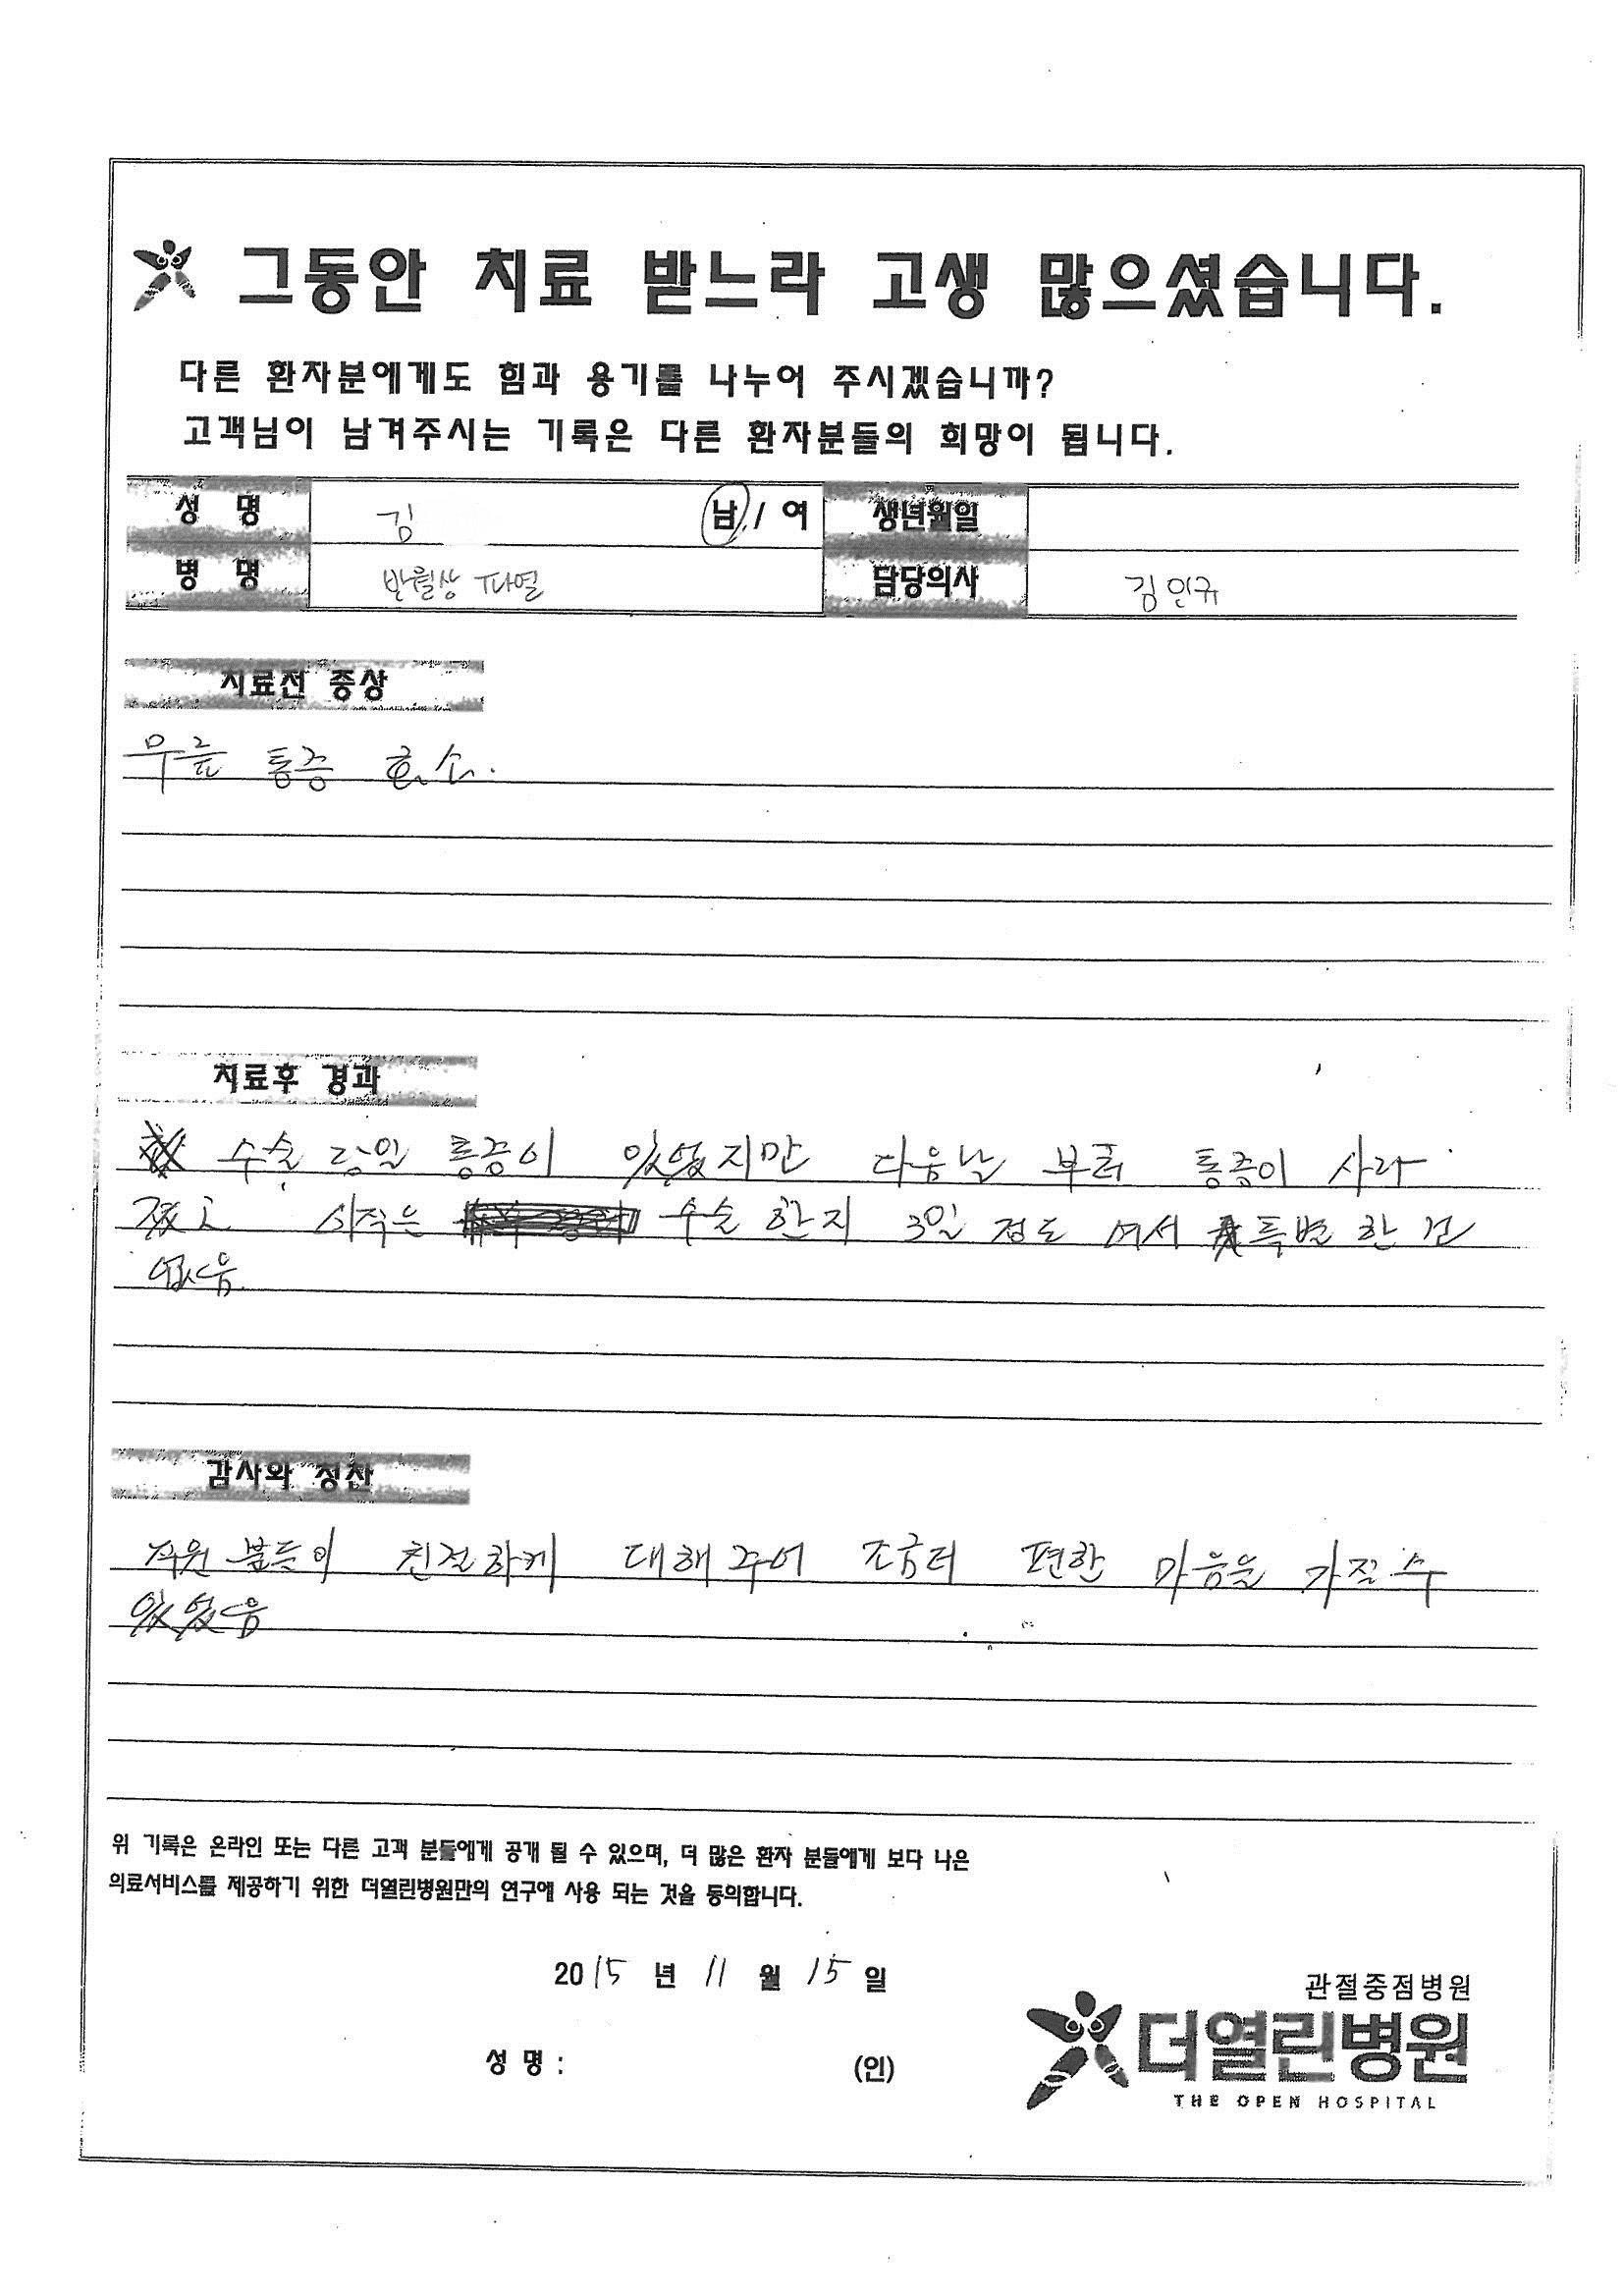 그동안 치료 받느라 고생 많으셨습니다.
다른 환자분에게도 힘과 용기를 나누어 주시겠습니까?
고객님이 남겨주시는 기록은 다른 환자분들의 희망이 됩니다.
성 명 김 남 / 여 생년월일
병 명 반월상 파열 담당의사 김인규
치료전 증상
무릎 통증 호소.
치료후 경과
수술 당일 통증이 있었지만 다음날 부터 통증이 사라
졌고 아직은 수술 한지 3일 정도 여서 특별한 건
없음.
감사와 칭찬
직원 분들이 친절하게 대해 주어 조금더 편한 마음을 가질 수
있었음
위 기록은 온라인 또는 다른 고객 분들에게 공개 될 수 있으며, 더 많은 환자 분들에게 보다 나은
의료서비스를 제공하기 위한 더열린병원만의 연구에 사용 되는 것을 동의합니다.
2015 년 11 월 15 일
관절중점병원
성 명 : (인) 더열린병원
THE OPEN HOSPITAL